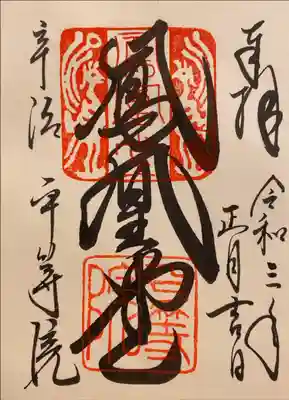 奉拝
令和三年
正月吉日
鳳凰堂
宇治
平等院